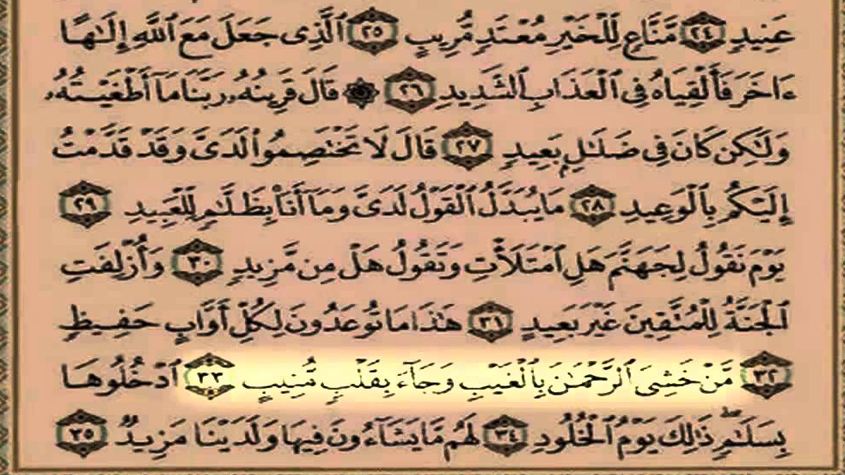 عَنِيدٍ ٢٤ مَّنَّاعٍ لِّلْخَيْرِ مُعْتَدٍ مُّرِيبٍ ٢٥ ٱلَّذِى جَعَلَ مَعَ ٱللَّهِ إِلَٰهًا
ءَاخَرَ فَأَلْقِيَاهُ فِى ٱلْعَذَابِ ٱلشَّدِيدِ ٢٦ ۞ قَالَ قَرِينُهُۥ رَبَّنَا مَآ أَطْغَيْتُهُۥ
وَلَٰكِن كَانَ فِى ضَلَٰلٍۭ بَعِيدٍ ٢٧ قَالَ لَا تَخْتَصِمُوا۟ لَدَىَّ وَقَدْ قَدَّمْتُ
إِلَيْكُم بِٱلْوَعِيدِ ٢٨ مَا يُبَدَّلُ ٱلْقَوْلُ لَدَىَّ وَمَآ أَنَا۠ بِظَلَّٰمٍ لِّلْعَبِيدِ ٢٩
يَوْمَ نَقُولُ لِجَهَنَّمَ هَلِ ٱمْتَلَأْتِ وَتَقُولُ هَلْ مِن مَّزِيدٍ ٣٠ وَأُزْلِفَتِ
ٱلْجَنَّةُ لِلْمُتَّقِينَ غَيْرَ بَعِيدٍ ٣١ هَٰذَا مَا تُوعَدُونَ لِكُلِّ أَوَّابٍ حَفِيظٍ
٣٢ مَّنْ خَشِىَ ٱلرَّحْمَٰنَ بِٱلْغَيْبِ وَجَآءَ بِقَلْبٍ مُّنِيبٍ ٣٣ ٱدْخُلُوهَا
بِسَلَٰمٍ ۖ ذَٰلِكَ يَوْمُ ٱلْخُلُودِ ٣٤ لَهُم مَّا يَشَآءُونَ فِيهَا وَلَدَيْنَا مَزِيدٌ ٣٥